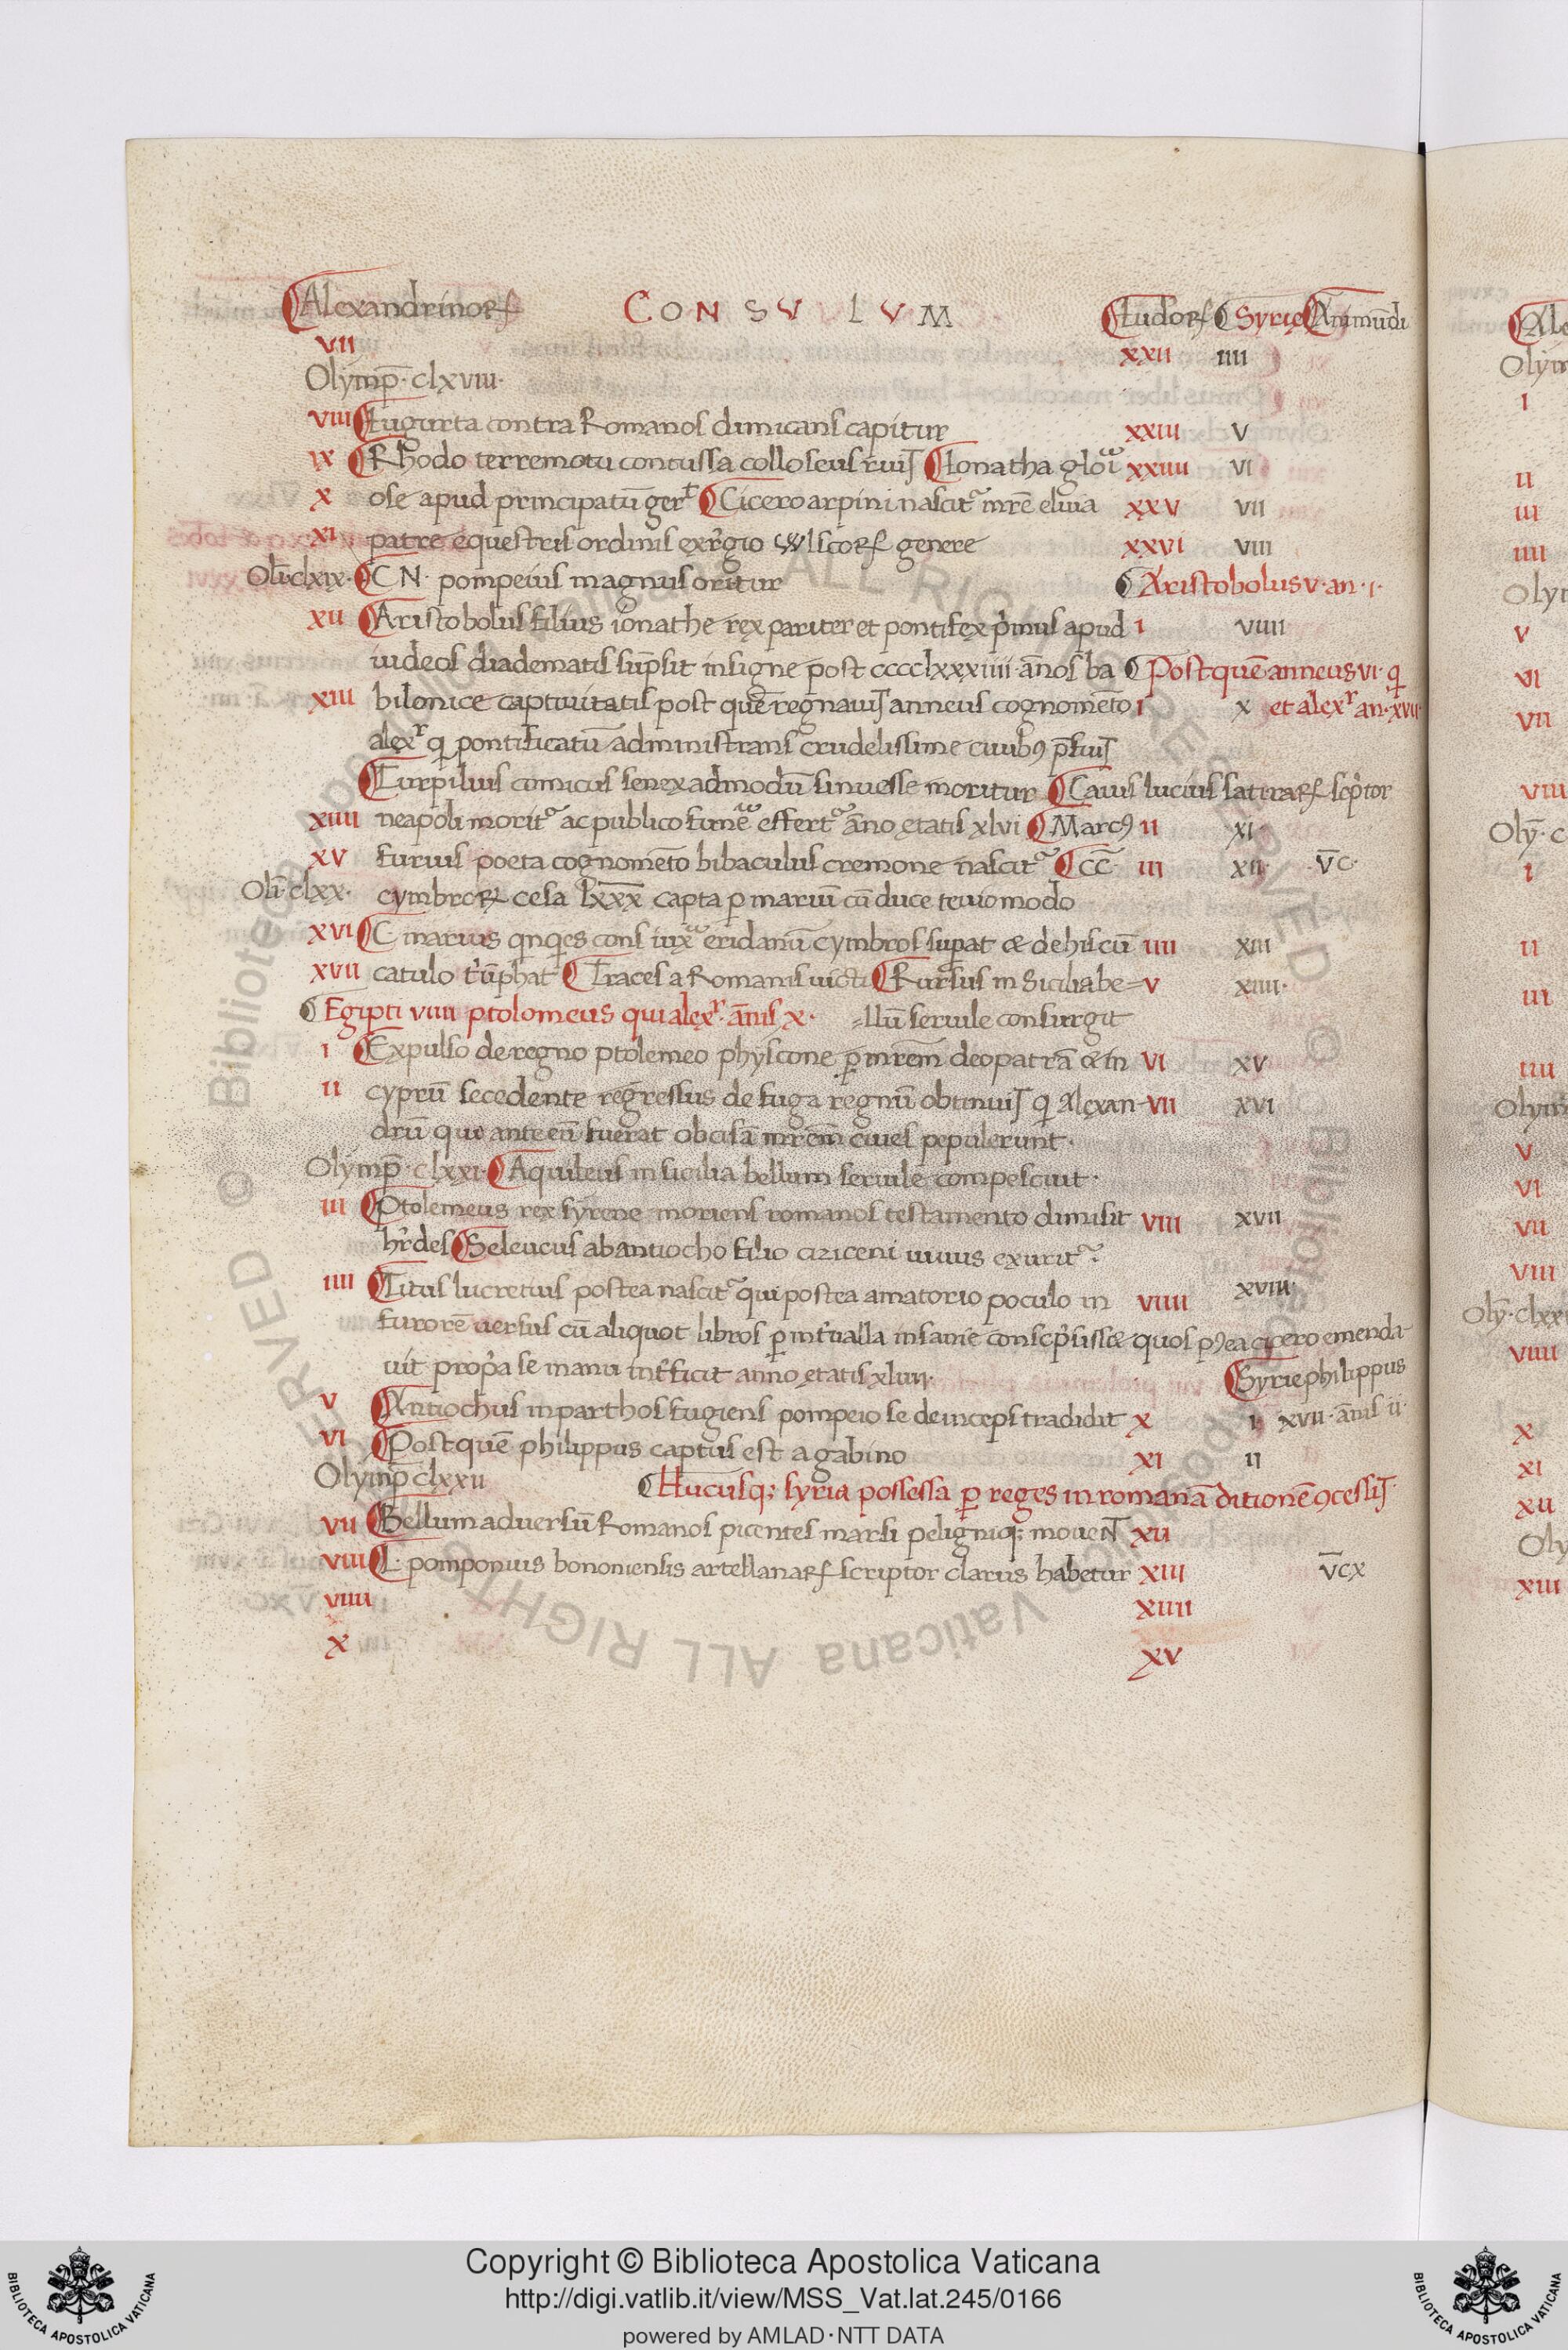 Alexandrinoꝝ CONSVLVM Iudoꝝ Syrie An mūdi
VII XXII IIII
Olymp̄· clxviii·
VIII Iugurta contra Romanos dimicans capitur XXIII V
IX Rhodo terremotu concussa colloseus ruit Ionatha gloi XXIIII VI
X ose apud principatū ger̄t Cicero arpini nascit᷑ mr̄e eluia XXV VII
XI patre equestris ordinis ex regio wlscoꝝ genere XXVI VIII
Oli·clxix· CN· pompeius magnus oritur Aristobolus v·an·i·
XII Aristobolus filius ionathe rex pariter et pontifex p'mus apud I VIIII
iudeos diadematis sūpsit insigne post cccclxxxiiii·ānos ba Post quē anneus vi·q
XIII bilonice captiuitatis post quē regnauit anneus cognomēto I X et alexr an·xvii·
alexr q pontificatū administrans crudelissime ciuibꝯ p̄fuit
Turpilius comicus senex admodū sinuesse moritur Caius lucius satiraꝝ scp'tor
XIIII neapoli morit᷑ ac publico funē effert᷑ āno etatis xlvi Marcꝯ II XI
XV furius poeta cognomēto bibaculus cremone nascit᷑ CC· III XII· v̄c·
Oli·clxx· cymbroꝝ cesa lxxx capta p mariū cū duce teuiomodo
XVI C marius qnqes cons iuxa eridanū cymbros supat & de his cū IIII XIII
XVII catulo t'ūphat Traces a Romanis uicti Rursus in Sicilia be= V XIIII·
Egipti viiii ptolomeus qui alexr·ānis x· =llū seruile consurgit
I Expulso de regno ptolemeo physcone p mr̄em cleopatrā & in VI XV
II cyprū secedente regressus de fuga regnū obtinuit q Alexan- VII XVI
drū qui ante eū fuerat ob cisā mr̄em ciues pepulerunt·
Olymp̄·clxxi· Aquileus in sicilia bellum seruile compescuit·
III Ptolemeus rex syrene moriens romanos testamento dimisit VIII XVII
hr̄des Seleucus ab antiocho filio ciziceni uiuus exurit᷑·
IIII Titus lucretius postea nascit᷑ qui postea amatorio poculo in VIIII XVIII·
furorē uersus cū aliquot libros p int'ualla insanie conscp'sissæ quos pꝯea cicero emenda
uit prop'a se manu int'ficit anno etatis xliiii· Syrie philippus
V Antiochus in parthos fugiens pompeio se deinceps tradidit X I xvii·ānis ii·
VI Post quē philippus captus est a gabino XI II
Olymp̄ clxxii Hucusq; syria possessa p reges in romanā ditionē ꝯcessit·
VII Bellum aduersū Romanos picentes marsi peligniq; mouent XII
VIII L· pomponius bononiensis artellanaꝝ scriptor clarus habetur XIII v̄cx
VIIII XIIII
X XV
Copyright © Biblioteca Apostolica Vaticana
http://digi.vatlib.it/view/MSS_Vat.lat.245/0166
powered by AMLAD·NTT DATA